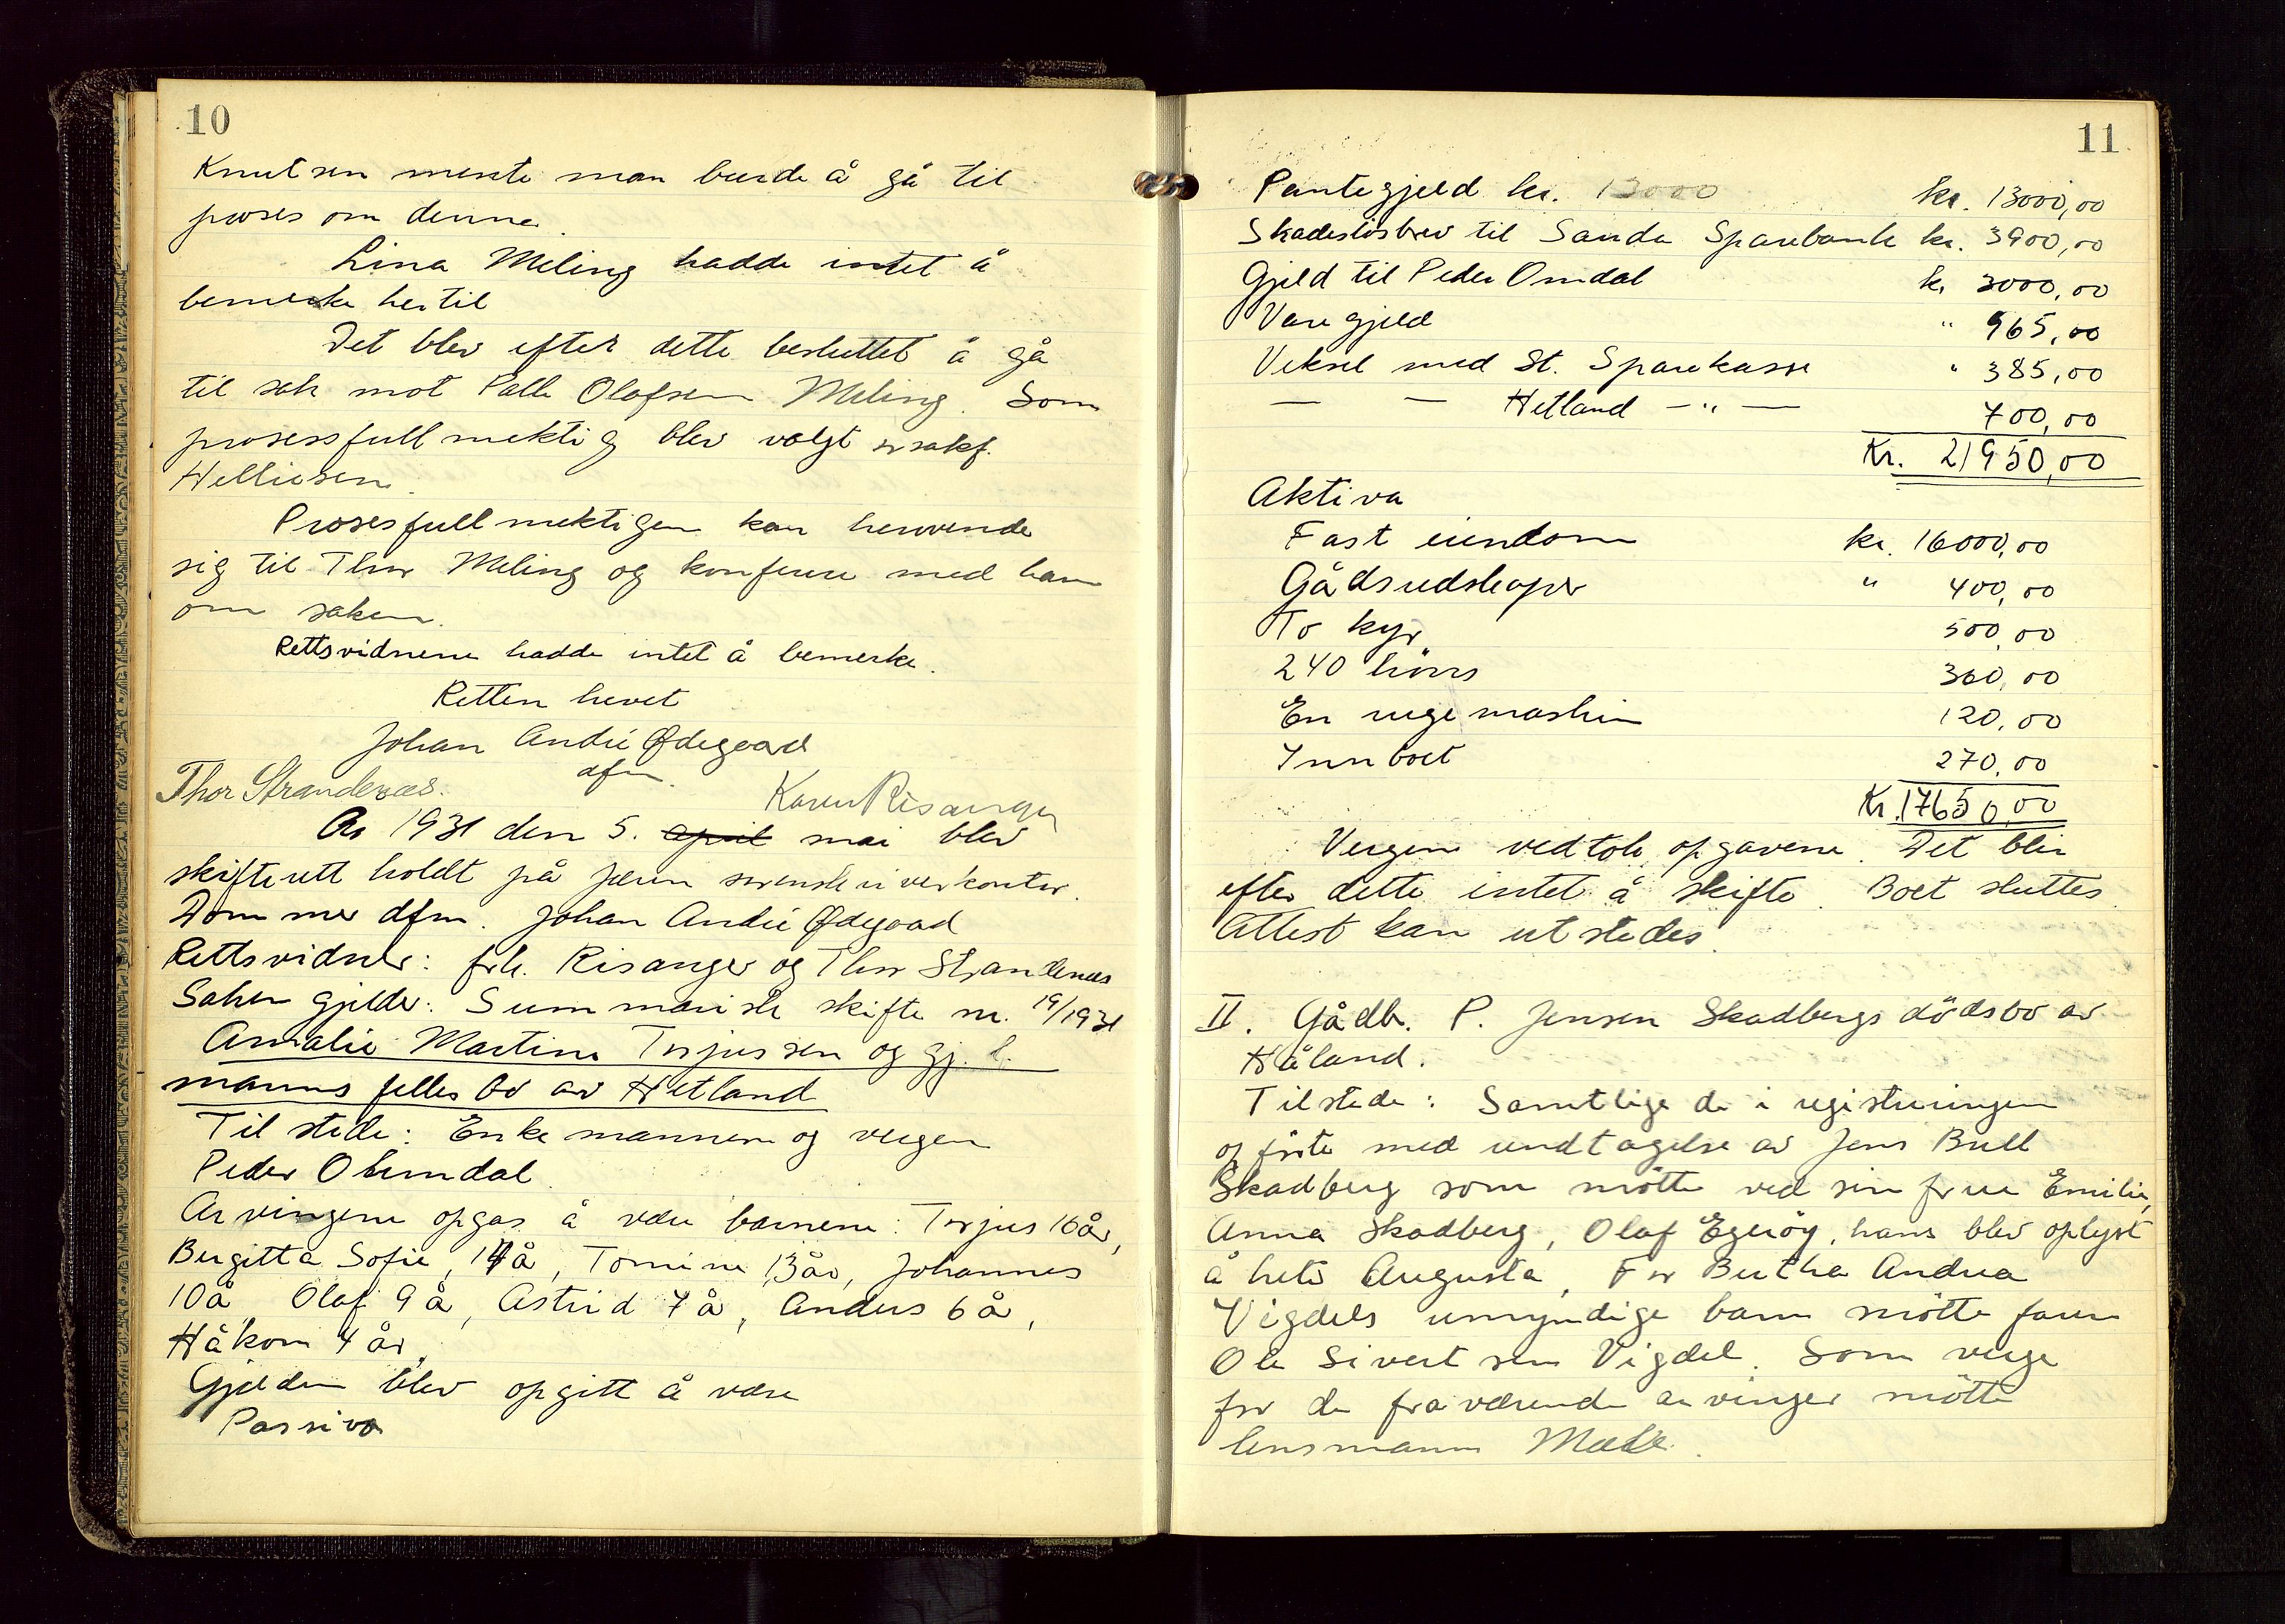 10
Knutsen mente man burde å gå til
proses om denne.
Lina Meling hadde intet å
bemerke hertil
Det blev efter dette besluttet å gå
til sak mot Palle Olafsen Meling. Som
prosessfullmektig blev valgt o.r.sakf.
Helliesen.
Prosesfullmektigen kan henvende
sig til Thor Meling og konferere med ham
om saken.
Rettsvidnene hadde intet å bemerke.
Retten hevet
Johan André Ødegaard
dfm.
Thor Strandenæs. Karen Risanger
År 1931 den 5. april mai blev
skifterett holdt på Jæren sorenskriverkontor.
Dommer dfm. Johan André Ødegaard
Rettsvidner: frk. Risanger og Thor Strandenæs
Saken gjelder: Summarisk skifte nr. 19/1931
Amalie Martine Torjussen og gj. l.
manns felles bo av Hetland
Tilstede: Enkemannen og vergen
Peder Ohmdal.
Arvingene opgas å være barnene: Torjus 16 år,
Bergitta Sofie, 14 å, Tomine 13 år, Johannes
10 å, Olaf 9 å, Astrid 7 å, Anders 6 å,
Håkon 4 år.
Gjelden blev opgitt å være
Passiva
11
Pantegjeld kr. 13000 kr. 13000,00
Skadesløsbrev til Sanda Sparebank kr. 3900,00
Gjeld til Peder Omdal k. 3000,00
Varegjeld " 965,00
Veksel med St. Sparekasse " 385,00
— — Hetland — " — 700,00
Kr. 21950,00
Aktiva
Fast eiendom kr. 16000,00
Gårdsredskaper " 400,00
To kyr 500,00
240 höns 360,00
En rugemaskin 120,00
Innboet 270,00
Kr. 17650,00
Vergen vedtok opgavene. Det blir
efter dette intet å skifte. Boet sluttes.
Attest kan utstedes.
II. Gårdbr. P. Jensen Skadbergs dödsbo av
Håland.
Tilstede: Samtlige de i registreringen
opförte med undtagelse av Jens Bull
Skadberg som mötte ved sin frue Emilie,
Anna Skadberg, Olaf Egeröy, hans blev oplyst
å hete Augusta, For Bertha Andrea
Vigdels umyndige barn mötte faren
Ole Sivertsen Vigdel. Som verge
for de fraværende arvinger mötte
lensmann Mæle.